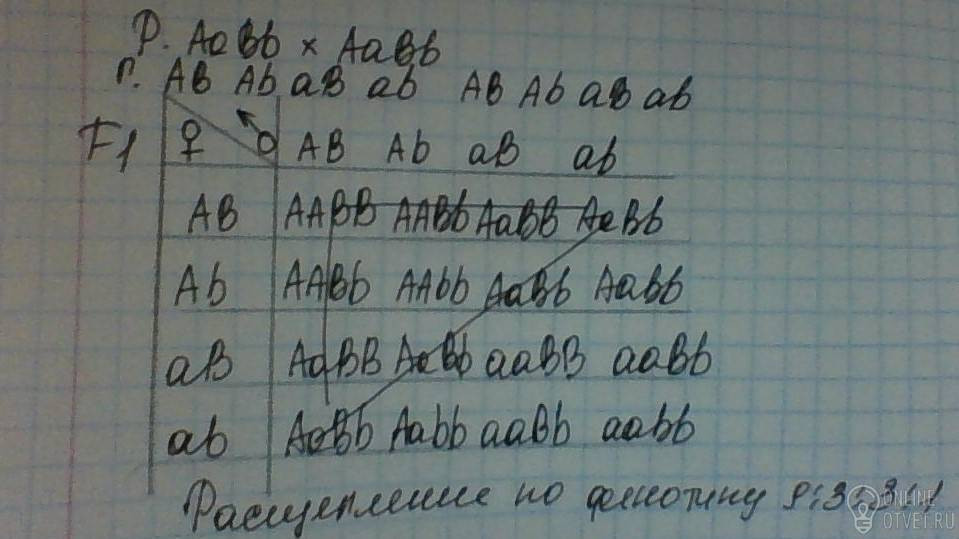 Р. AaBb × AaBb
Г. AB Ab aB ab AB Ab aB ab
F1 ♀ ♂ AB Ab aB ab
AB AABB AABb AaBB AaBb
Ab AABb AAbb AaBb Aabb
aB AaBB AaBb aaBB aaBb
ab AaBb Aabb aaBb aabb
Расщепление по фенотипу 9:3:3:1
ONLINE
OTVET.RU